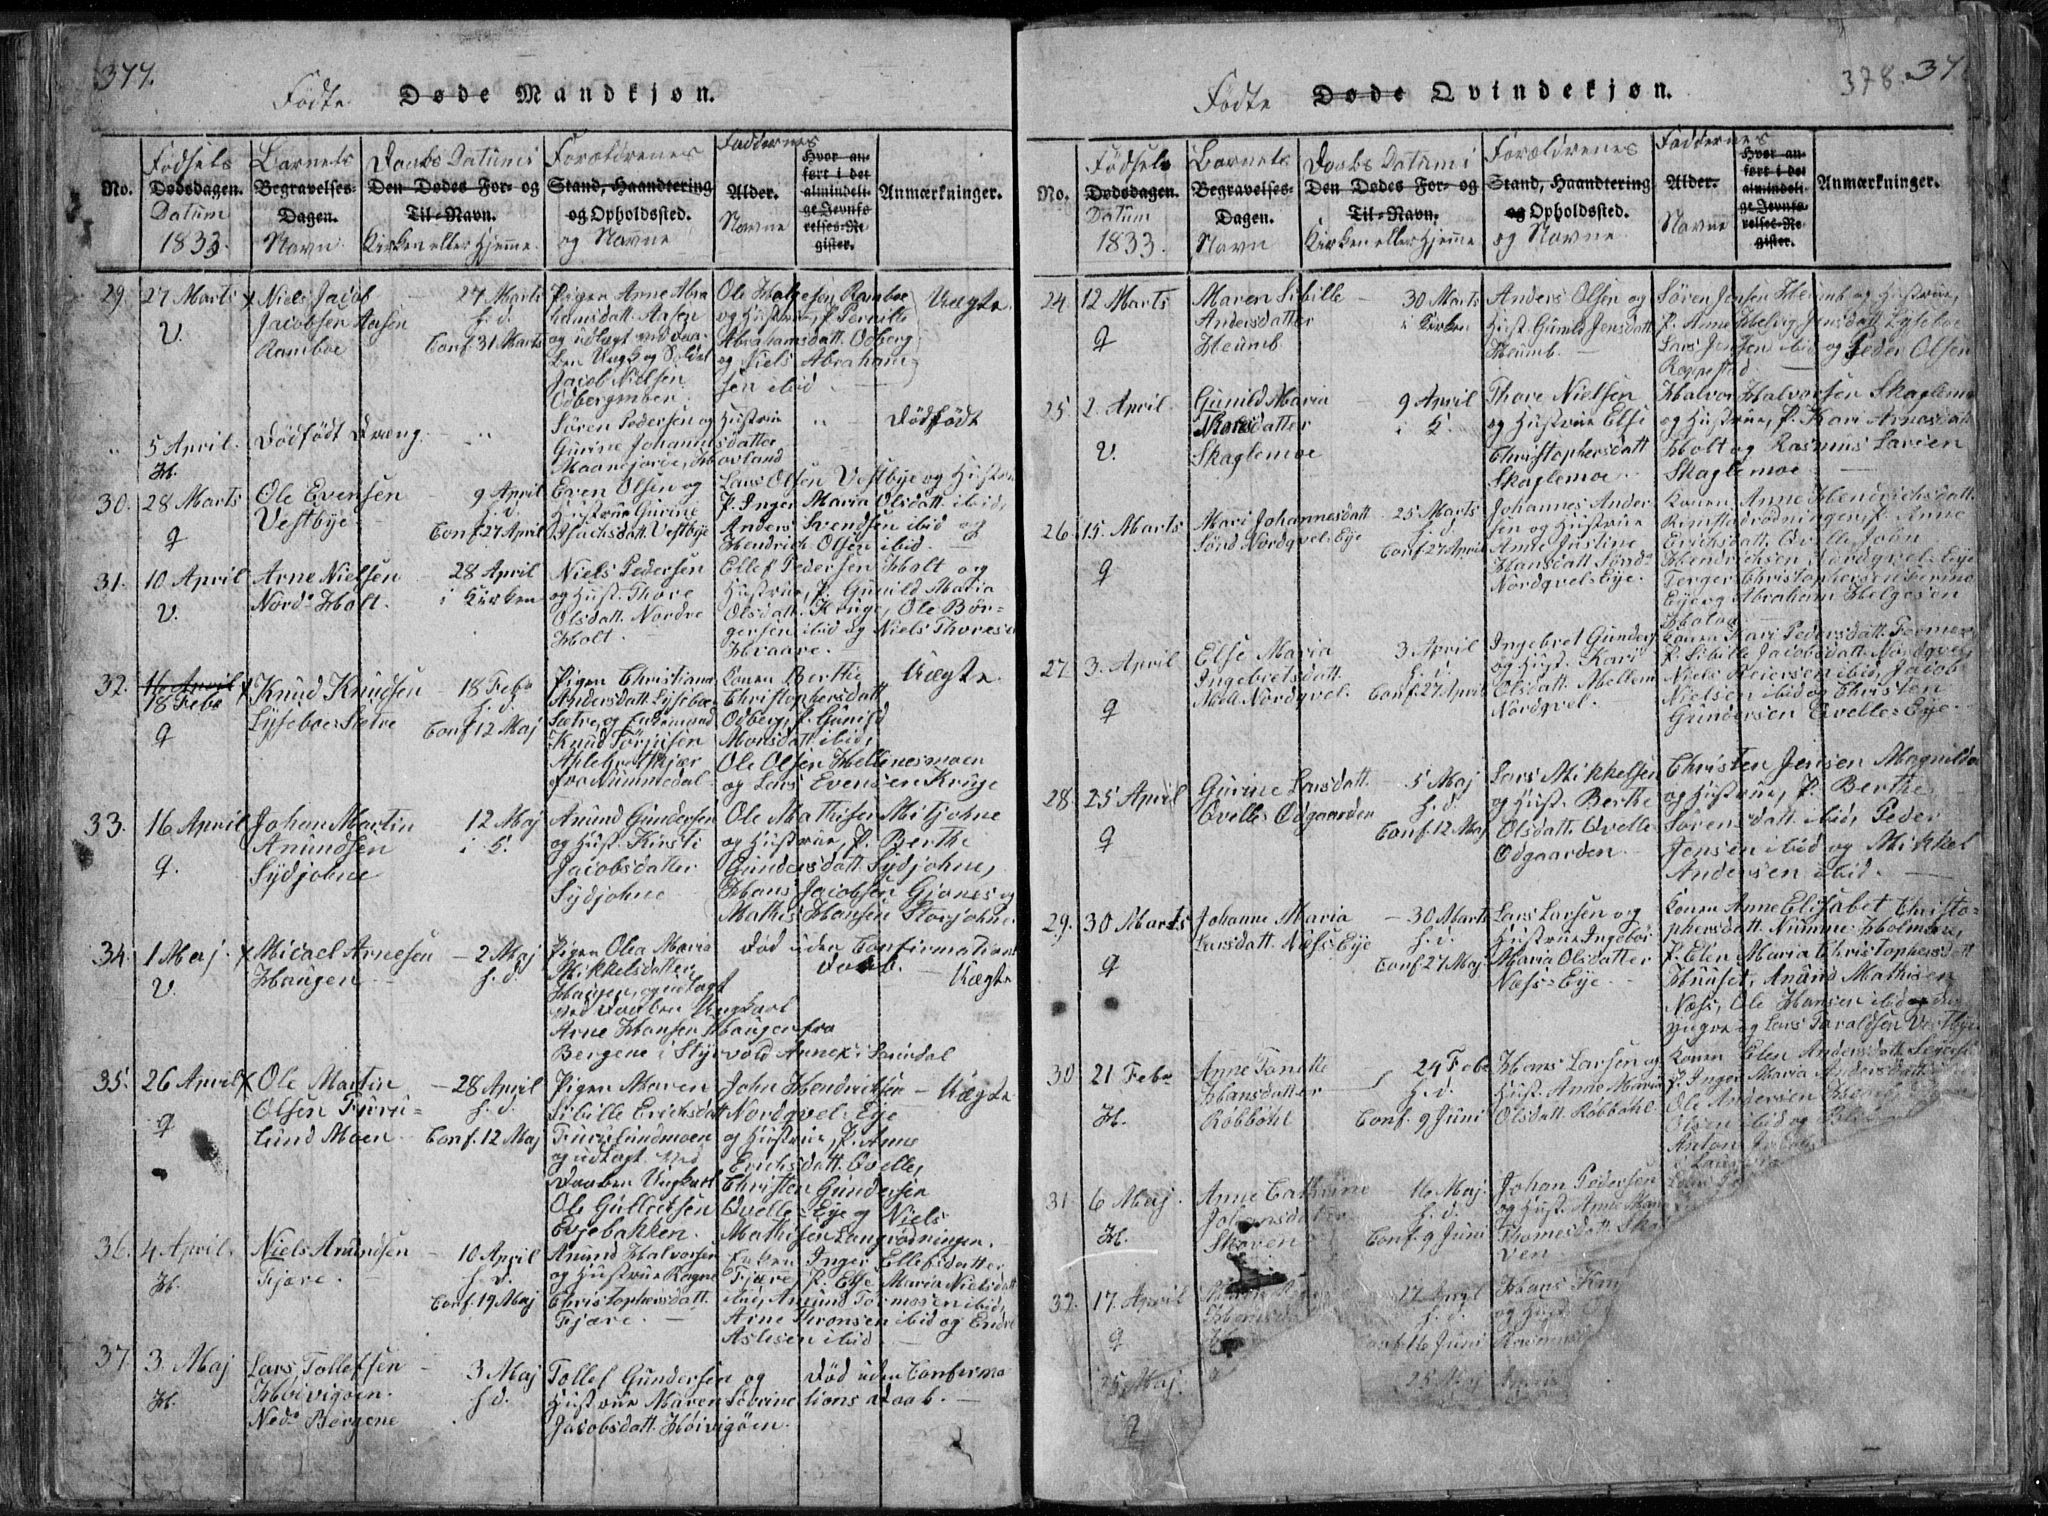 377.
Födte Døde Mandkjøn.
No.
Födsels
Dødsdagen.
Datum
1833.
Barnets
Begravelses-
Dagen.
Navn
Daabs Datum i
Den Dødes For- og
Til-Navn.
Kirken eller Hjemme
Forældrenes
Stand, Haandtering
og Opholdssted.
og Navne
Faddernes
Alder.
Navne
Hvor an-
ført i det
almindeli-
ge Jevnfø-
relses-Re-
gister.
Anmærkninger.
29.
27 Marts
V.
x Niels Jacob
Jacobsen Aasen
Ramboe
27 Marts
h. d.
Conf. 31 Marts
Pigen Anne Abra
hamsdatt. Aasen
og udlagt ved daa-
ben Ungk. og Soldat
Jacob Nielsen
Odbergmber.
Ole Holgesen Ramboe
og Hustrue, P. Pernille
Abrahamsdatt. Odberg
og Niels Abraham-
sen ibid.
Uægte
5 April.
H.
Dödfödt Dræng.
Sören Pedersen og Hustrue
Gurine Johannesdatter
Maanejorde, Hovland
Dödfödt
30.
28 Marts
q
Ole Evensen
Vestbye
9 April
h. d.
Conf. 27 April
Even Olsen og
Hustrue Gurine
Isachsdatt. Vestbye
Lars Olsen Vestbye og Hustrue
P. Inger Maria Olsdatt. ibid,
Anders Svendsen ibid og
Hendrich Olsen ibid.
31.
10 April
V.
Arne Nielsen
Nord. Holt.
28 April
i Kirken
Niels Pedersen
og Hust. Thore
Olsdatt. Nordre
Holt
Ellef Pedersen Holt og
Hustrue, P. Gunild Maria
Olsdatt. Kruge, Ole Bör-
gersen ibid og Niels Thoresen
Hvaare.
32.
16 April
18 Febr
q
x Knud Knudsen
Lyseboe Sætre
18 Febr
h. d.
Conf. 12 Maj
Pigen Christiana
Andersdatt Lyseboe
Sætre, og Enkemand
Knud Törjusen
fra Nummedal
Konen Berthe
Christophersdatt.
Odberg, P. Gunild
Monsdatt. ibid,
Ole Olsen Hellenesmoen
og Lars Evensen Kruge
Uægte
33.
16 April
q.
Johan Martin
Anundsen
Sydjohne
12 Maj
i K.
Anund Gundersen
og Hust. Kirsti
Jacobsdatter
Sydjohne
Ole Mathisen Mitjohne
og Hustrue, P. Berthe
Gundersdatt. Sydjohne,
Hans Jacobsen Gjones og
Mathis Hansen Storjohne.
34.
1 Maj.
V.
x Micael Arnesen
Haugen
2 Maj
h. d.
Pigen Olea Maria
Mikkelsdatter
Haugen, og udlagt
ved Daaben Ungkarl
Arne Hansen Haugen fra
Bergene i Styrvold Annex i Laurdal
Död uden Confirmations
daab.
Uægte
35.
26 April
q
x Ole Martin
Olsen Furu-
lund Moen
28 April
h. d.
Conf. 12 Maj
Pigen Maren
Sibille Erichsdatt
Furulundmoen
og udlagt ved
Daaben Ungkarl
Ole Gulleicsen
Evjebakken.
John Hendrichsen
Nordqvel-Eye
og Hustrue, P. Anne
Erichsdatt. Qvelle,
Christen Gundersen
Qvelle-Eye og Niels
Mathisen Langrödningen.
Uægte
36.
4 April.
H.
Niels Anundsen
Fjære
10 April
h. d.
Conf. 19 Maj
Anund Halvorsen
og Hustrue Ragne
Christophersdatt.
Fjære.
Enken Inger Ellefsdatter
Fjære, P. Else Maria Nielsdatt
ibid, Amund Tormosen ibid,
Arne Aronsen ibid og Endre
Aslesen ibid
37.
3. Maj
H.
Lars Tollefsen
Höivigöen
Ned. Bergene
3 Maj
h. d.
Tollef Gundersen og
Hustrue Maren Severine
Jacobsdatt. Höivigöen.
Död uden Confirma
tions daab.
378. 37
Födte Døde Qvindekjøn.
No.
Födsels
Dødsdagen.
Datum
1833.
Barnets
Begravelses-
Dagen.
Navn
Daabs Datum i
Den Dødes For- og
Til-Navn.
Kirken eller Hjemme
Forældrenes
Stand, Haandtering
og Opholdssted.
og Navne
Faddernes
Alder.
Navne
Hvor an-
ført i det
almindeli-
ge Jevnfø-
relses-Re-
gister.
Anmærkninger.
24.
12 Marts
q
Maren Sibille
Andersdatter
Heumb
30 Marts
i Kirken
Anders Olsen og
Hust. Gunild Jensdatt
Heumb.
Sören Jensen Heumb og Hustrue,
P. Anne Helvig Jensdatt. Lyseboe
Lars Jensen ibid og Peder Olsen
Roppestad.
25.
2. April.
V.
Gunild Maria
Thoresdatter
Skaglemoe
9 April
i K.
Thore Nielsen
og Hustrue Else
Christophersdatt.
Skaglemoe
Halvor Halvorsen Skaglemoe
og Hustrue, P. Kari Arnesdatt
Holt og Rasmus Larsen
Skaglemoe
26
15. Marts
q
Mari Johannesdatt
Sönd Nordqvel-Eye
25 Marts
h. d.
Conf. 27 April
Johannes Ander
sen og Hustrue
Anne Justine
Hansdatt Sönd.
Nordqvel-Eye.
Konen Anne Hendrichsdatt.
Rimstadrödningen, P. Anne
Erichsdatt. Qvelle, John
Hendrichsen Nordqvel-Eye
Terger Christophersen Ferme
Eye og Abraham Helgesen
Holoa
27.
3. April
q
Else Maria
Ingebretsdatt.
Mell Nordqvel.
3 April
h. d.
Conf. 27 April
Ingebret Gunders
og Hust. Kari
Olsdatt. Mellem
Nordqvel.
Konen Kari Pedersdatt. Fermer
P. Sibille Jacobsdatt Nordqvel
Niels Peiersen ibid, Jacob
Nielsen ibid og Christen
Gundersen Qvelle-Eye.
28.
25 April
q
Gurine Larsdatt.
Qvelle Odgaarden
5 Maj
h. d.
Conf. 12 Maj
Lars Mikkelsen
og Hust. Berthe
Olsdatt. Qvelle
Odgaarden
Christen Jensen Magnilda
og Hustrue, P. Berthe
Sörensdatt ibid, Peder
Jensen ibid og Mikkel
Andersen ibid.
29.
30 Marts
q
Johanne Maria
Larsdatt. Næss-Eye
30 Marts
h. d.
Conf. 27 Maj
Lars Larsen og
Hustrue Ingebor
Maria Olsdatter
Næss-Eye
Konen Anne Elisabet Christo-
phersdatt. Numme-Holmen,
P. Elen Maria Christophersdatt
Huuset, Anund Mathisen
Næss, Ole Hansen ibid den
yngre og Lars Taraldsen Vestbye
30
21 Febr
H.
Anne Tonette
Hansdatter
Röbböhl
24 Febr
h. d.
Conf. 9 Juni
Hans Larsen og
Hust. Anne Maria
Olsdatt. Röbböhl
Konen Elen Andersdatt
P. Inger Maria Andersdatt
Ole Andersen
Olsen ibid og
Anton
31
6 Maj.
H.
Anne Cathrine
Johansdatter
Skoven
16 Maj.
h. d.
Conf. 9 Juni
Johan Pedersen
og Hust. Anne Maria
Thomesdatt Sko
ven
32.
17. April
q
27 April
h. d.
Conf 16 Juni
Hans
og Hust
Rasmus
25 Maj.
q
25 Maj